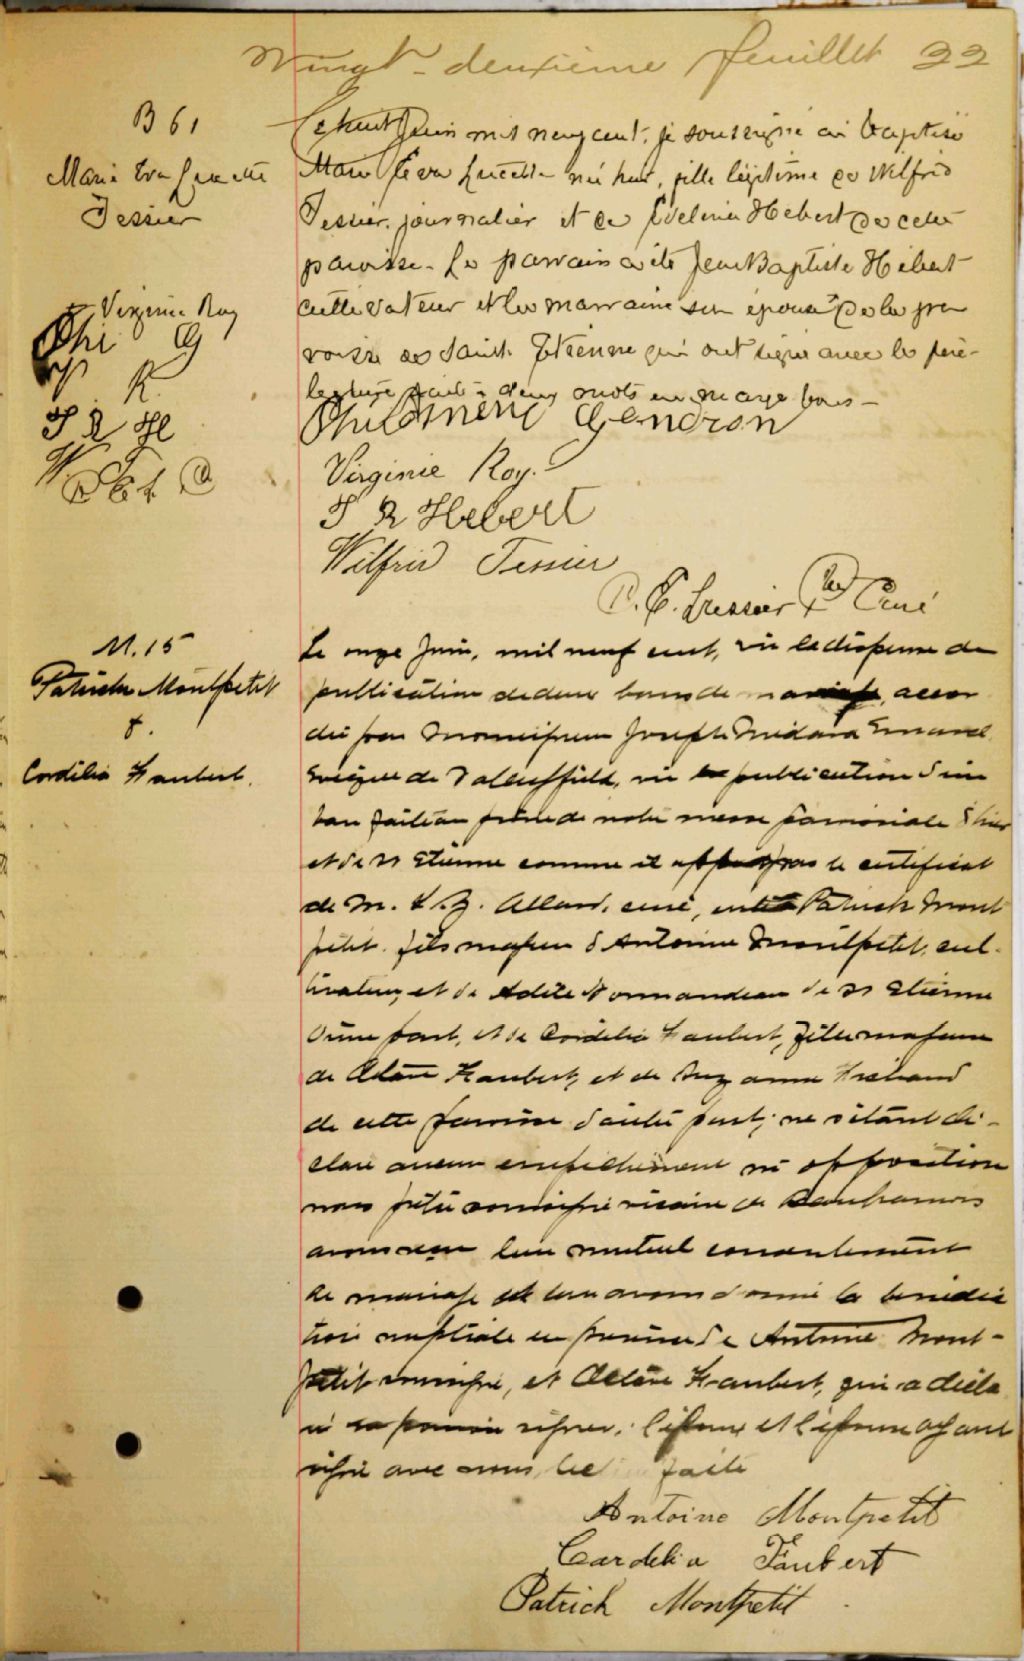 Vingt-deuxième feuillet 22
B 61
Marie Eva Lucette
Tessier
Virginie Roy
Phi G
V R
J B H
W. T
P. E. L. C
Le huit Juin mil neuf cent, je soussigné ai baptisé
Marie Eva Lucette née hier, fille légitime de Wilfrid
Tessier, journalier et de Evelina Hébert de cette
paroisse. Le parrain a été Jean Baptiste Hébert
cultivateur et la marraine son épouse de la pa
roisse de Saint Etienne qui ont signé avec le père.
lecture faite. deux mots en marge bons
Philomène Gendron
Virginie Roy.
J B Hebert
Wilfrid Tessier
P. E. Lussier Ptre Curé
M. 15
Patrick Montpetit
&.
Cordélia Faubert.
Le onze Juin, mil neuf cent, vu la dispense de
publication de deux bans de mariage, accor
dée par Monseigneur Joseph Médard Emard
Evêque de Valleyfield, vu la publication d'un
ban faite au prône de notre messe paroissiale d'hier
et de St Etienne comme il appert par le certificat
de M. Allard, curé, entre Patrick Mont
petit, fils majeur d'Antoine Montpetit, cul-
tivateur, et de Adèle Normandeau de St Etienne
d'une part, et de Cordélia Faubert, fille majeure
de Faubert, et de Suzanne
de cette paroisse d'autre part; ne s'étant dé-
claré aucun empêchement ni opposition
nous prêtre soussigné vicaire de Beauharnois
avons reçu leur mutuel consentement
de mariage et leur avons donné la bénédic
tion nuptiale en présence de Antoine Mont-
petit soussigné, et Faubert, qui a décla
ré signer, l'époux et l'épouse ayant
signé avec nous, faite
Antoine Montpetit
Cardelia Faubert
Patrick Montpetit